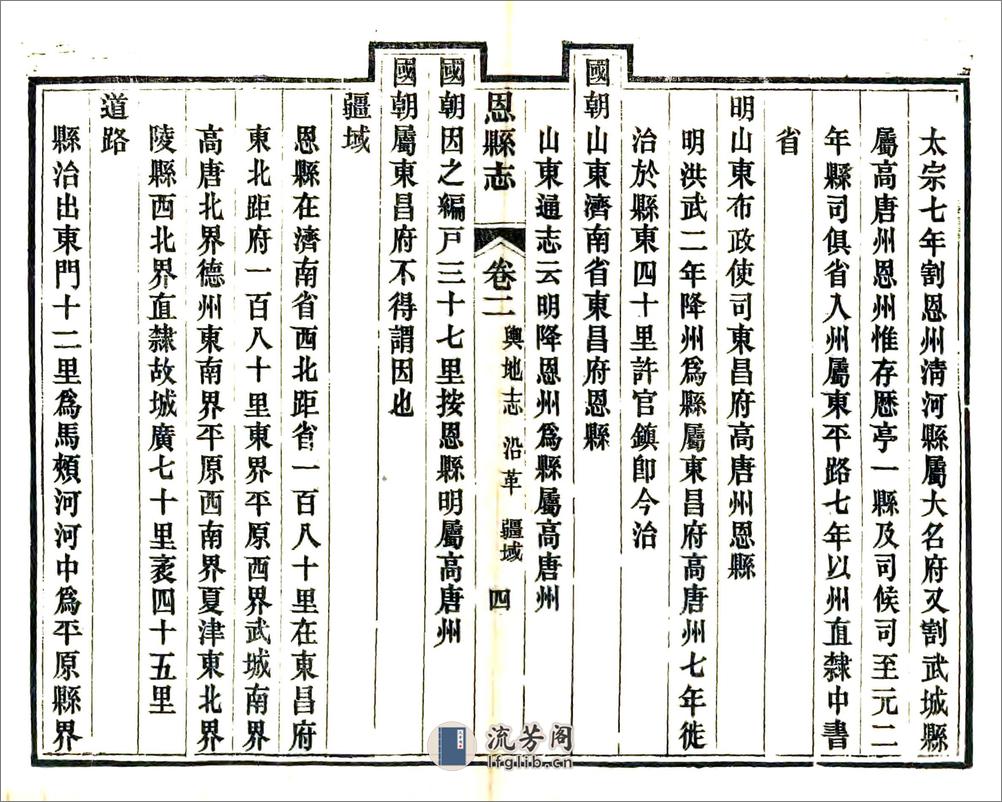 太宗七年割恩州淸河縣屬大名府又割武城縣
屬高唐州恩州惟存歷亭一縣及司候司至元二
年縣司俱省入州屬東平路七年以州直隸中書
省
明山東布政使司東昌府高唐州恩縣
明洪武二年降州爲縣屬東昌府高唐州七年徙
治於縣東四十里許官鎮卽今治
國朝山東濟南省東昌府恩縣
山東通志云明降恩州爲縣屬高唐州
恩縣志 卷二 輿地志 沿革 疆域 四
國朝因之編戸三十七里按恩縣明屬高唐州
國朝屬東昌府不得謂因也
疆域
恩縣在濟南省西北距省一百八十里在東昌府
東北距府一百八十里東界平原西界武城南界
高唐北界德州東南界平原西南界夏津東北界
陵縣西北界直隸故城廣七十里袤四十五里
道路
縣治出東門十二里爲馬頰河河中爲平原縣界
流芳阁
lfglib.cn